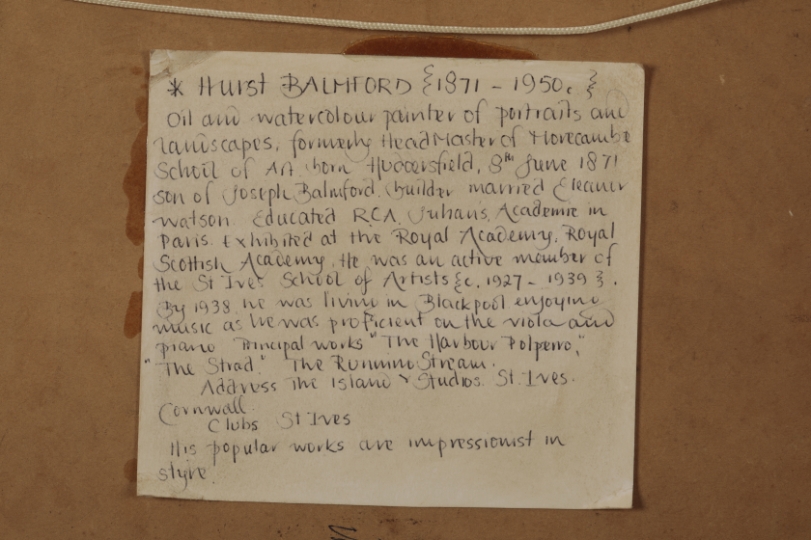 * Hurst BALMFORD {1871 - 1950. }
Oil and watercolour painter of portraits and
landscapes, formerly Head Master of Morecambe
School of Art born Huddersfield, 8th June 1871
son of Joseph Balmford. builder married Eleanor
Watson. Educated R.C.A. Julian's, Academie in
Paris. Exhibited at the Royal Academy, Royal
Scottish Academy. He was an active member of
the St Ives School of Artists {c. 1927 - 1939 }.
By 1938 he was living in Blackpool enjoying
music as he was proficient on the viola and
piano Principal works "The Harbour Polperro,"
"The Strad." The Running Stream.
Address The Island Studios. St. Ives.
Cornwall.
Clubs St Ives
His popular works are impressionist in
style.